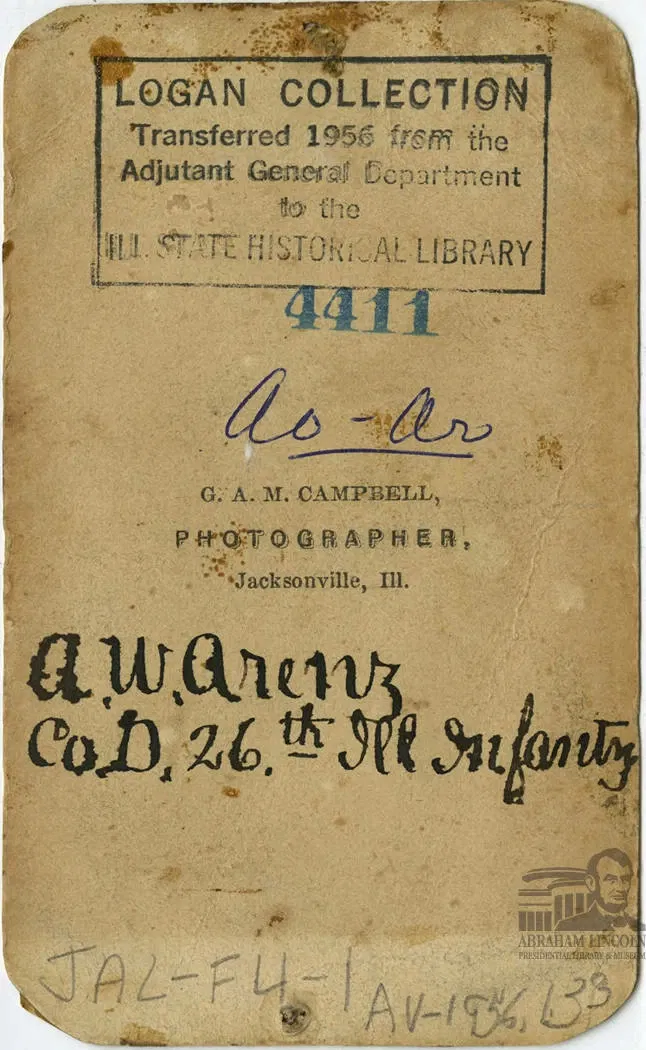 LOGAN COLLECTION
Transferred 1956 from the
Adjutant General Department
to the
ILL. STATE HISTORICAL LIBRARY
4411
Ao - Ar
G. A. M. CAMPBELL,
PHOTOGRAPHER,
Jacksonville, Ill.
A. W. Arenz
Co. D. 26.th Ill Infanty
ABRAHAM LINCOLN
PRESIDENTIAL LIBRARY & MUSEUM
JAL-F4-1
AV-1956, 133